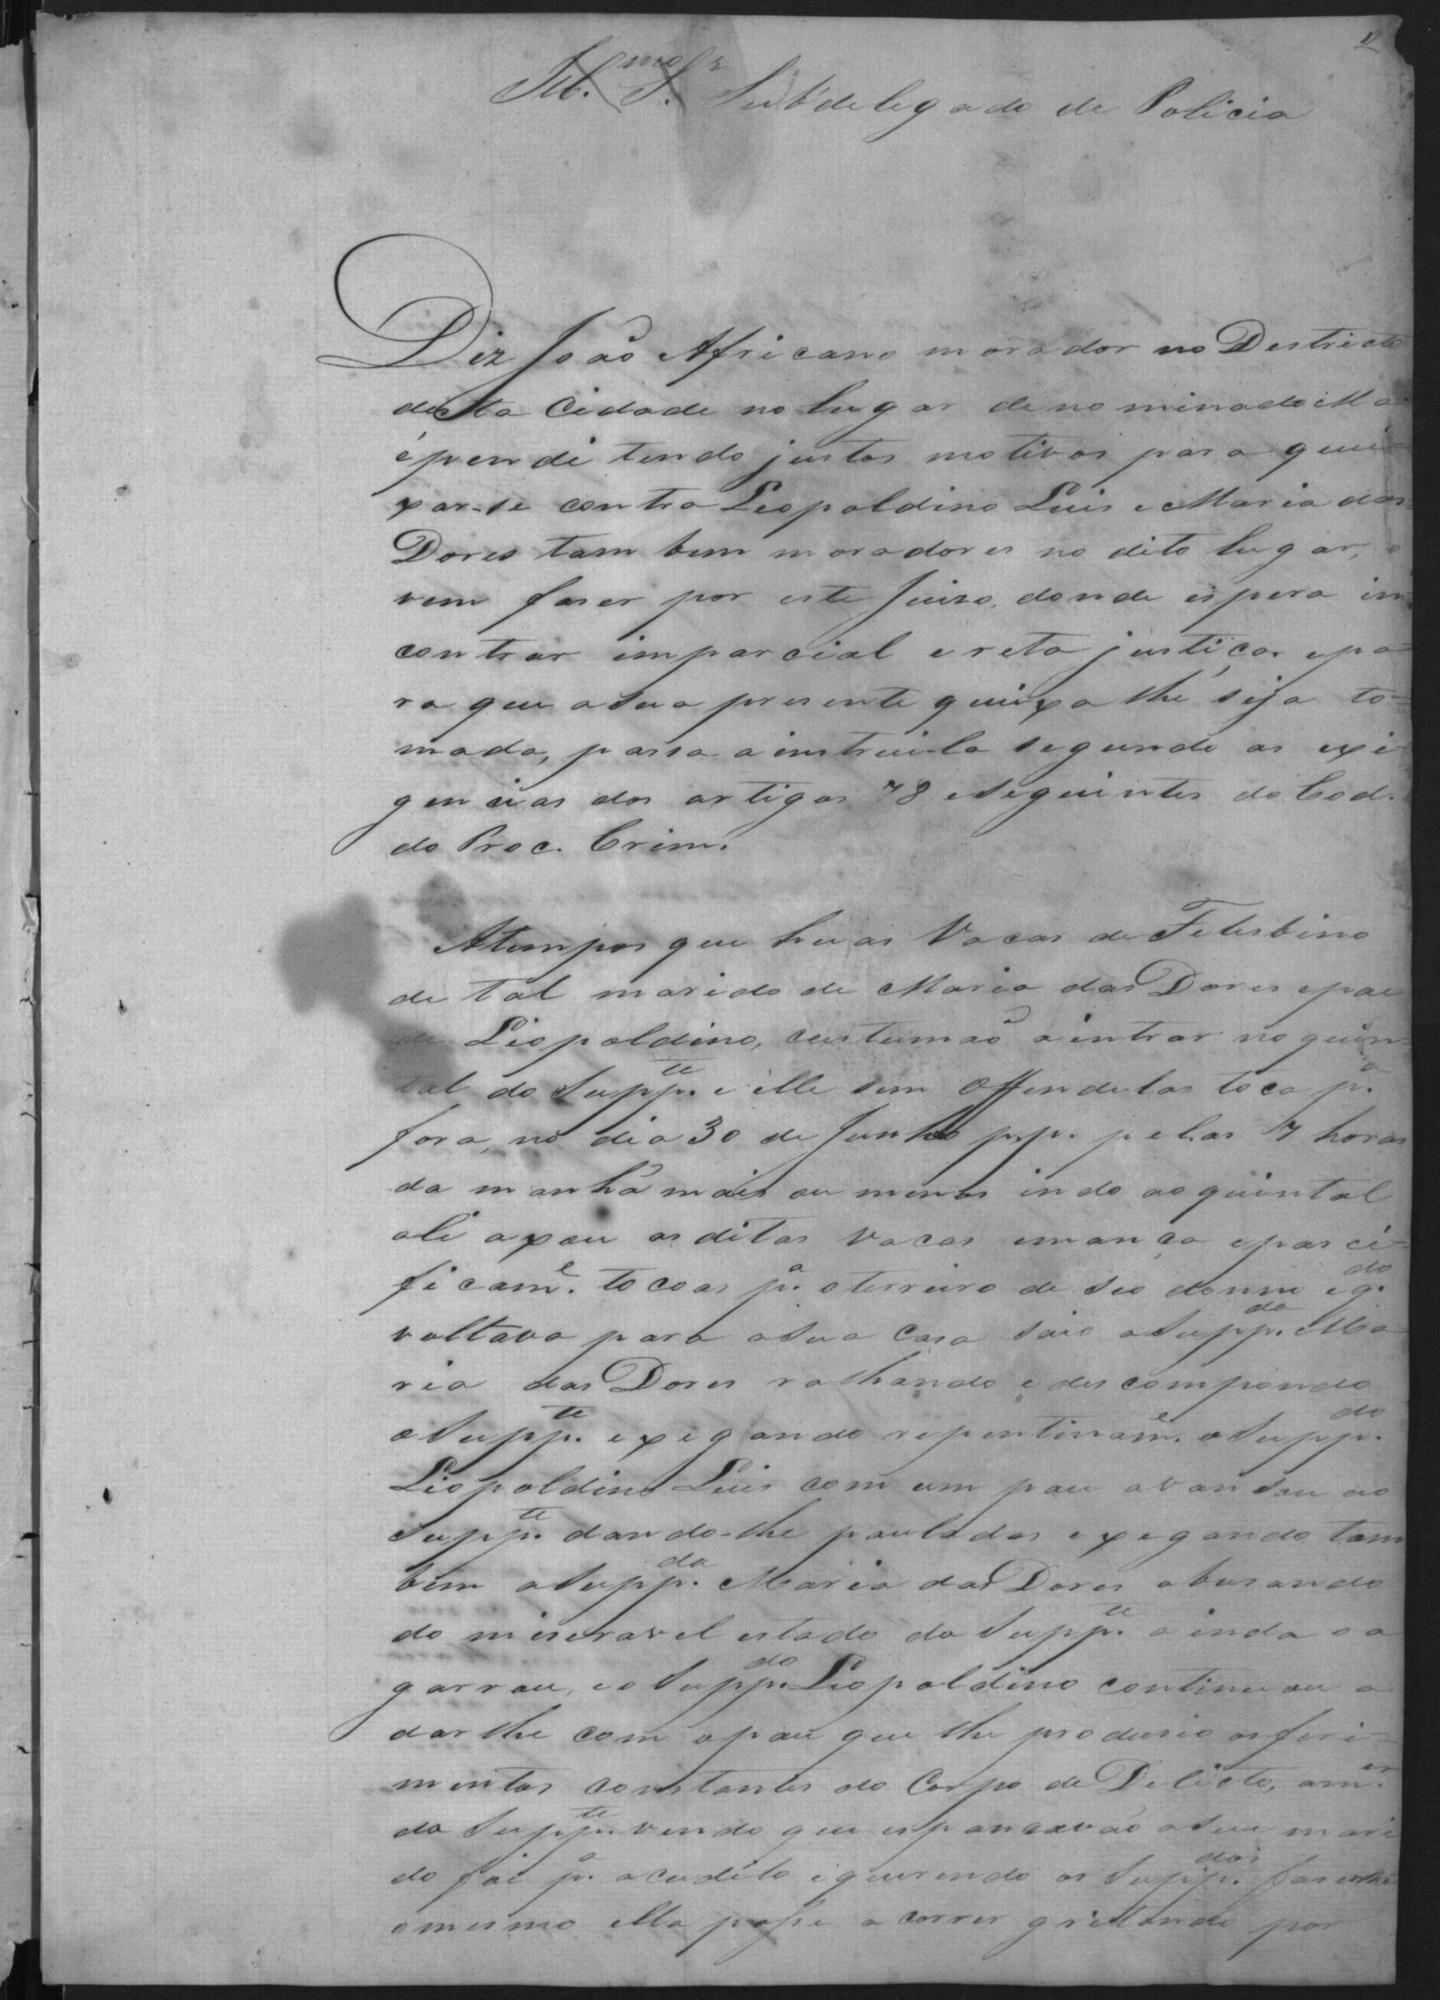 Ill.mo S.r Subdelegado de Policia
Diz João Africano morador no Destricto
desta Cidade no lugar denominado Ma
épendi tendo justos motivos para quei-
xar-se contra Leopoldino Luis e Maria das
Dores tambem moradores no dito lugar, o
vem faser por este Juiso, donde espera in
contrar imparcial e reta justiça, epa
ra que a sua presente queixa lhe seja to-
mada, passa a instruila segundo as exi
gencias dos artigos 78 eseguintes do Cod.
do Proc. Crim.
Atempos que huas Vacas de Felisbino
de tal marido de Maria das Dores epae
de Liopoldino, custumão aintrar no quin
tal do Supp.te e elle sem offendelas toca p.a
fora, no dia 30 de Junho p.p. pelas 7 horas
da manhã mais ou menos indo ao quintal
ali axou as ditas vacas emança epasci-
ficam.e tocoas p.a oterreiro de seo donno eq.do
voltava para asua Casa saio aSupp.da Ma-
ria das Dores ralhando e descompondo
oSupp.te expegando repentinam.e oSupp.do
Liopoldino Luis com um pau avansou ao
Supp.te dando-lhe pauladas expegando tam
bem aSupp.da Maria das Dores abusando
do miseravel estado do Supp.te ainda o a
garrou, eo Supp.do Liopoldino continuou a
darlhe com opau que lhe produsio osferi-
mentos constantes do Corpo de Delicto, am.er
do Supp.te vendo que espancavão aseu mari
do foi p.a acudilo equerendo os Supp.dos faserlhe
omesmo ella pôsse a correr gritando por